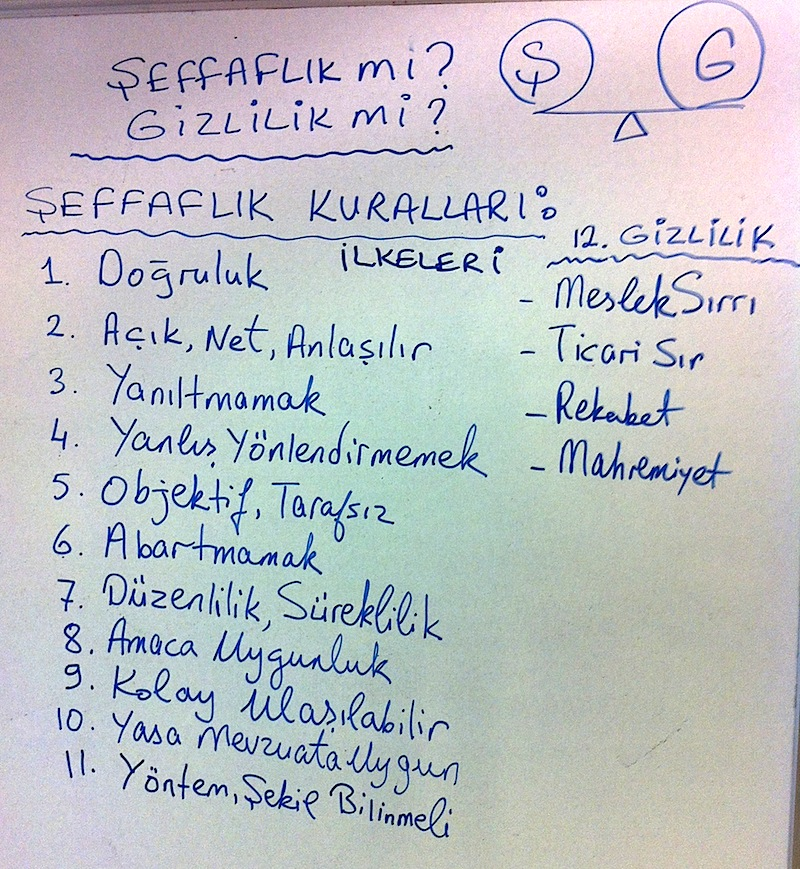 ŞEFFAFLIK mi?
GİZLİLİK mi?
Ş G
ŞEFFAFLIK KURALLARI:
İLKELERİ
1. Doğruluk
2. Açık, Net, Anlaşılır
3. Yanıltmamak
4. Yanlış Yönlendirmemek
5. Objektif, Tarafsız
6. Abartmamak
7. Düzenlilik, Süreklilik
8. Amaca Uygunluk
9. Kolay Ulaşılabilir
10. Yasa Mevzuata Uygun
11. Yöntem, Şekil Bilinmeli
12. GİZLİLİK
- Meslek Sırrı
- Ticari Sır
- Rekabet
- Mahremiyet